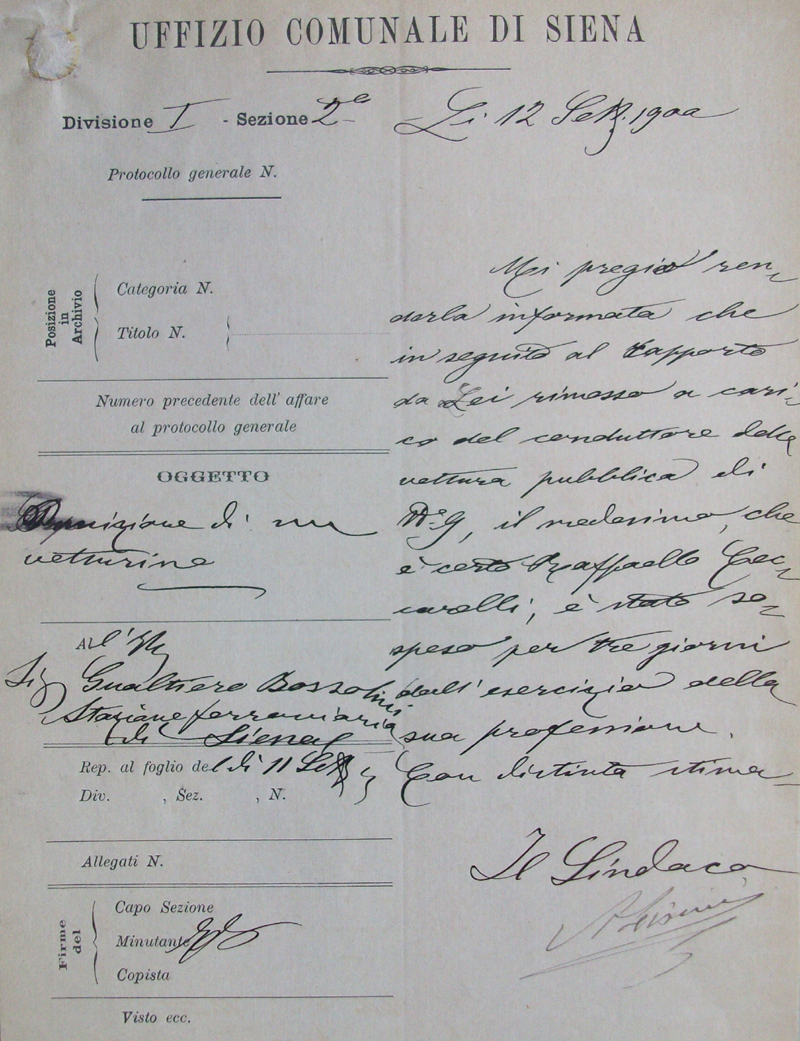 UFFIZIO COMUNALE DI SIENA
Divisione I - Sezione 2a
Li 12 Set. 1900
Protocollo generale N.
Posizione in Archivio
Categoria N.
Titolo N.
Numero precedente dell' affare
al protocollo generale
OGGETTO
Punizione di un
vetturino
All'
Sig Gualtiero
Stazione ferroviaria
di Siena
Rep. al foglio del dì 11 Set
Div. , Sez. , N.
Allegati N.
Firme del
Capo Sezione
Minutante
Copista
Visto ecc.
Mi pregio ren-
derla informata che
in seguito al rapporto
da Lei rimesso a cari-
co del conduttore della
vettura pubblica di
No 9, il medesimo, che
è certo Raffaello Cec-
carelli, è stato so-
speso per tre giorni
dall'esercizio della
sua professione.
Con distinta stima
Il Sindaco